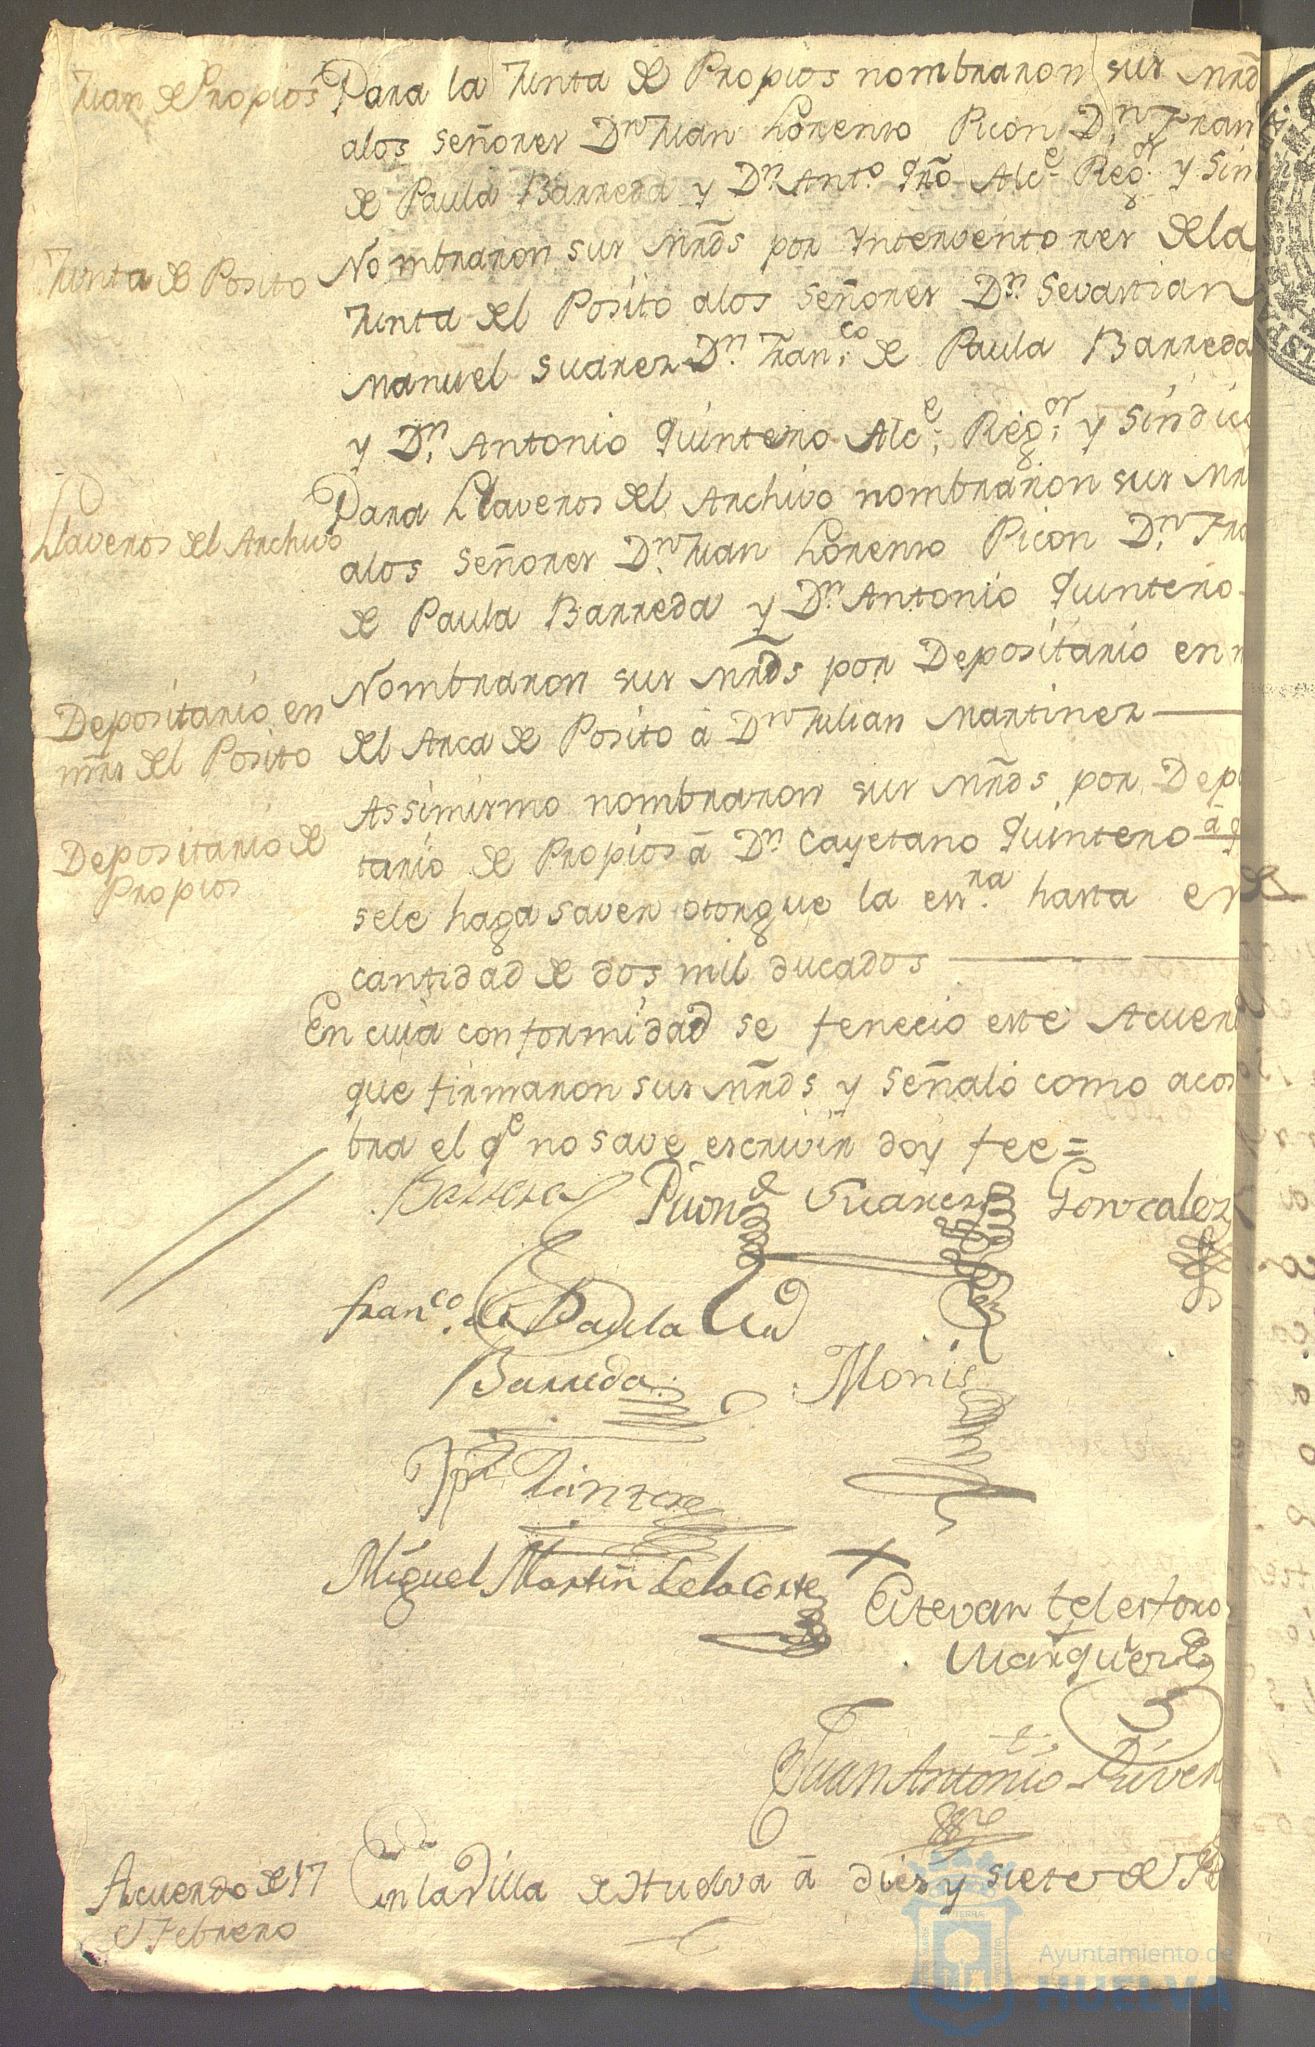 Juan de Propios
Para la Junta de Propios nombraron sus Mrd
alos señores Dn Juan Lorenso Picon Dn. Fran
de Paula Barreda y Dn Anto. Qro Alce Regor. y Sin
Junta de Posito
Nombraron sus Mrds por Ynterventores dela
Junta del Posito alos señores Dn. Sevastian
Manuel Suarez Dn. Franco. de Paula Barreda
y Dn. Antonio Quintero Alce. Regor. y Sindic
Llaveros del Archivo
Para Llaveros del Archivo nombraron sus Mr
alos señores Dn Juan Lorenso Picon Dn. Fra
de Paula Barreda y Dn Antonio Quintero
Depositario en
mrs del Posito
Nombraron sus Mrds por Depositario en m
del Arca de Posito á Dn Julian Martinez
Depositario de
Propios
Assimismo nombraron sus Mrds por Depo
tario de Propios á Dn Cayetano Quintero á q
sele haga saver otorgue la essra. hasta en
cantidad de dos mil ducados
En cuia conformidad se fenecio este Acuerd
que firmaron sus Mrds y señaló como acos
bra el qe no save escrivir doy fee=
Picon Suarez Gonzalez
Franco. de Paula
Barreda Monis
Quintero
Miguel Martin de la Corte
Estevan telesforo
Marquez
Juan Antonio River
Acuerdo de 17
de Febrero
En la Villa de Huelva á dies y siete de Fe
Ayuntamiento de
HUELVA